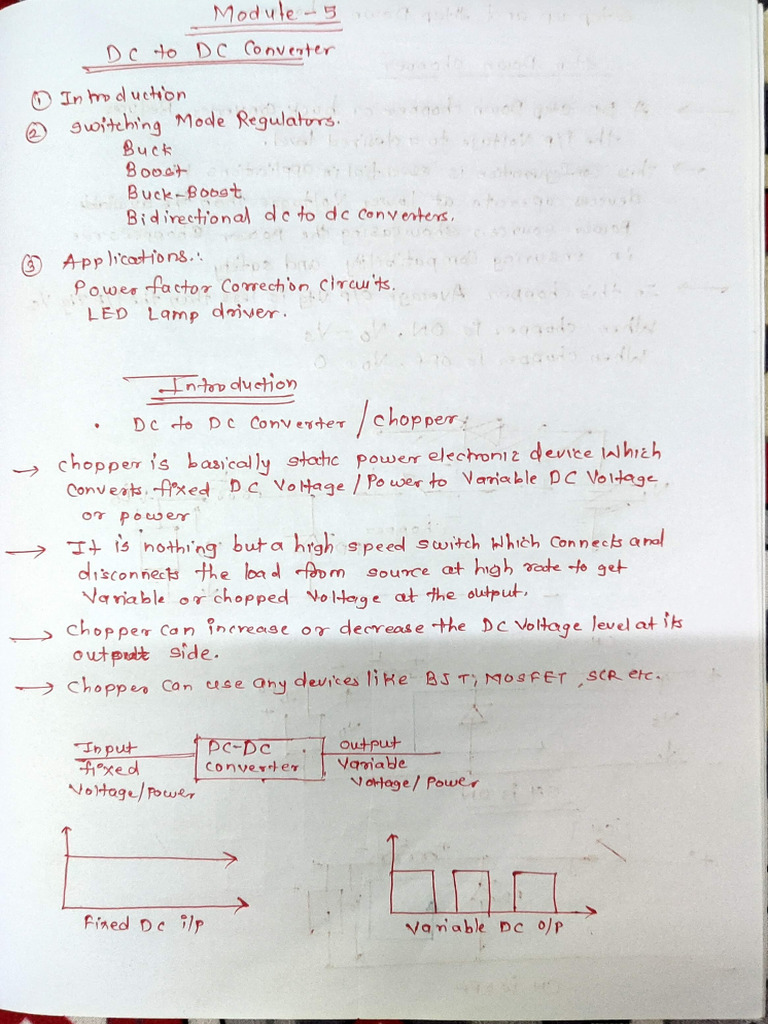 Module - 5
DC to DC Converter
① Introduction
② Switching Mode Regulators.
Buck
Boost
Buck-Boost
Bidirectional dc to dc converters.
③ Applications:
Power factor Correction Circuits.
LED Lamp driver.
Introduction
• DC to DC Converter / Chopper.
→ Chopper is basically static power electronic device which
Converts fixed DC Voltage/Power to Variable DC Voltage
or power
→ It is nothing but a high speed switch which connects and
disconnects the load from source at high rate to get
Variable or chopped Voltage at the output.
→ Chopper can increase or decrease the DC Voltage level at its
output side.
→ Chopper can use any devices like BJT, MOSFET, SCR etc.
Input
fixed
Voltage/Power
DC-DC
Converter
Output
Variable
Voltage/Power
Fixed DC i/p
Variable DC o/p